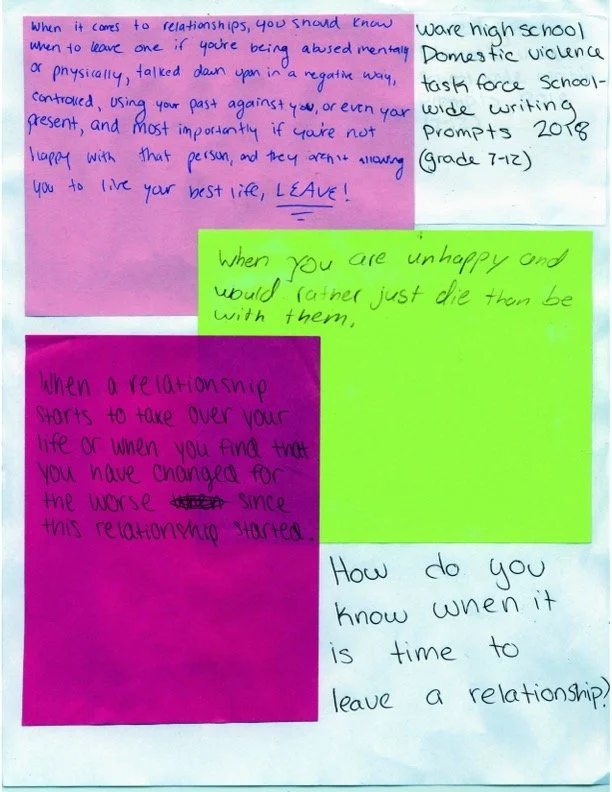 When it comes to relationships, you should know
when to leave one if you're being abused mentally
or physically, talked down upon in a negative way,
controlled, using your past against you, or even your
present, and most importantly if you're not
happy with that person, and they aren't allowing
you to live your best life, LEAVE!
Ware high school
Domestic violence
task force School-
wide writing
Prompts 2018
(grade 7-12)
When you are unhappy and
would rather just die than be
with them.
When a relationship
starts to take over your
life or when you find that
you have changed for
the worse since
this relationship started.
How do you
know when it
is time to
leave a relationship?